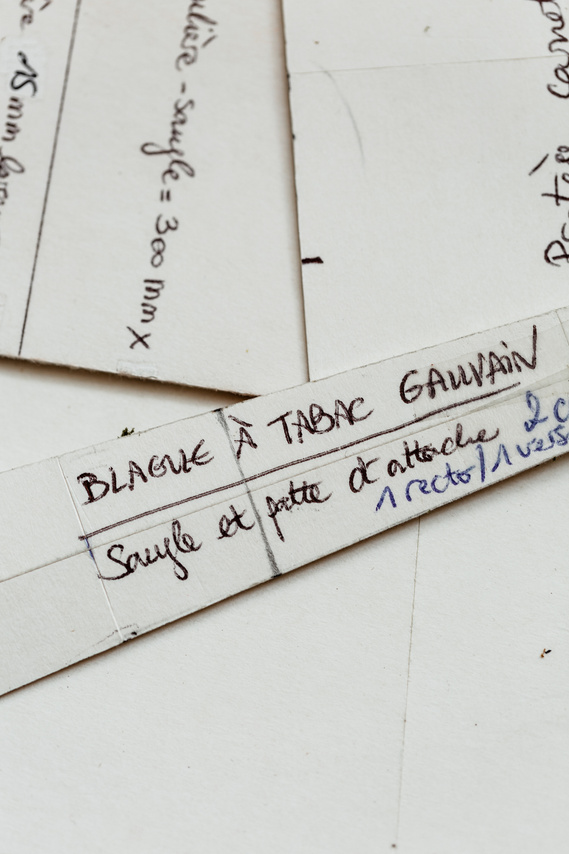 15 mm
- sangle = 300 mm x
Portée
BLAGUE À TABAC GAUVAIN
Sangle et patte d'attache
1 recto / 1 verso